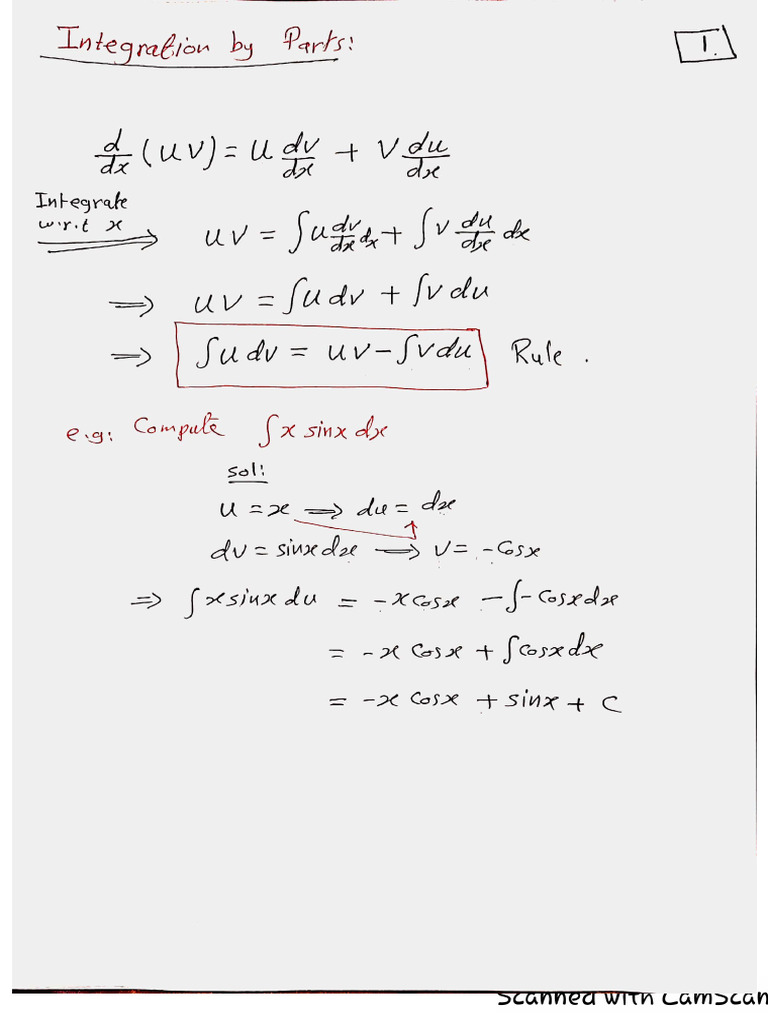 Integration by Parts:
1
d/dx (uv) = u dv/dx + v du/dx
Integrate
w.r.t x
⟹ uv = ∫u dv/dx dx + ∫v du/dx dx
⟹ uv = ∫u dv + ∫v du
⟹ ∫u dv = uv - ∫v du Rule .
e.g: Compute ∫x sinx dx
sol:
u = x ⟹ du = dx
dv = sinx dx ⟶ v = -cosx
⟹ ∫x sinx du = -x cosx - ∫-cosx dx
= -x cosx + ∫cosx dx
= -x cosx + sinx + c
Scanned with CamScan